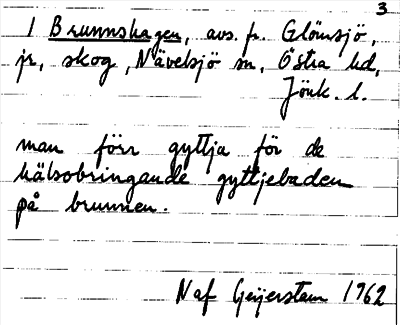 3
I Brunnshagen, avs. fr. Glömsjö,
jr, skog, Nävelsjö sn, Östra hd,
Jönk. l.
man förr gyttja för de
hälsobringande gyttjebaden
på brunnen.
Naf Geijerstam 1962